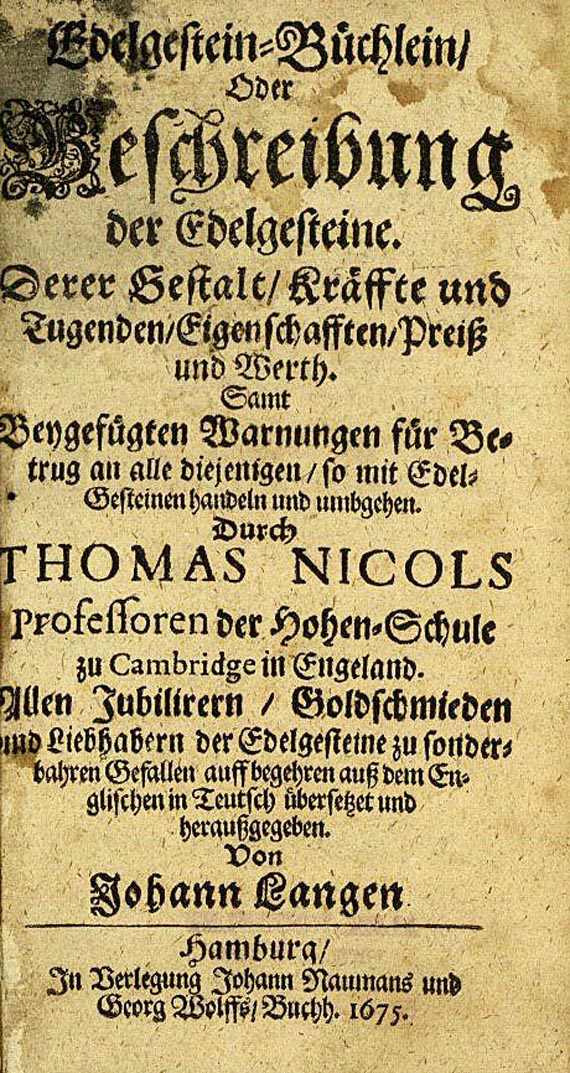 Edelgestein-Büchlein/
Oder
Beschreibung
der Edelgesteine.
Derer Gestalt/ Kräffte und
Tugenden/Eigenschafften/Preiß
und Werth.
Samt
Beygefügten Warnungen für Be-
trug an alle diejenigen/ so mit Edel-
Gesteinen handeln und umbgehen.
Durch
THOMAS NICOLS
Professoren der Hohen-Schule
zu Cambridge in Engeland.
Allen Jubilirern / Goldschmieden
und Liebhabern der Edelgesteine zu sonder-
bahren Gefallen auff begehren auß dem En-
glischen in Teutsch übersetzet und
heraußgegeben.
Von
Johann Langen
Hamburg/
In Verlegung Johann Naumans und
Georg Wolffs/ Buchh. 1675.